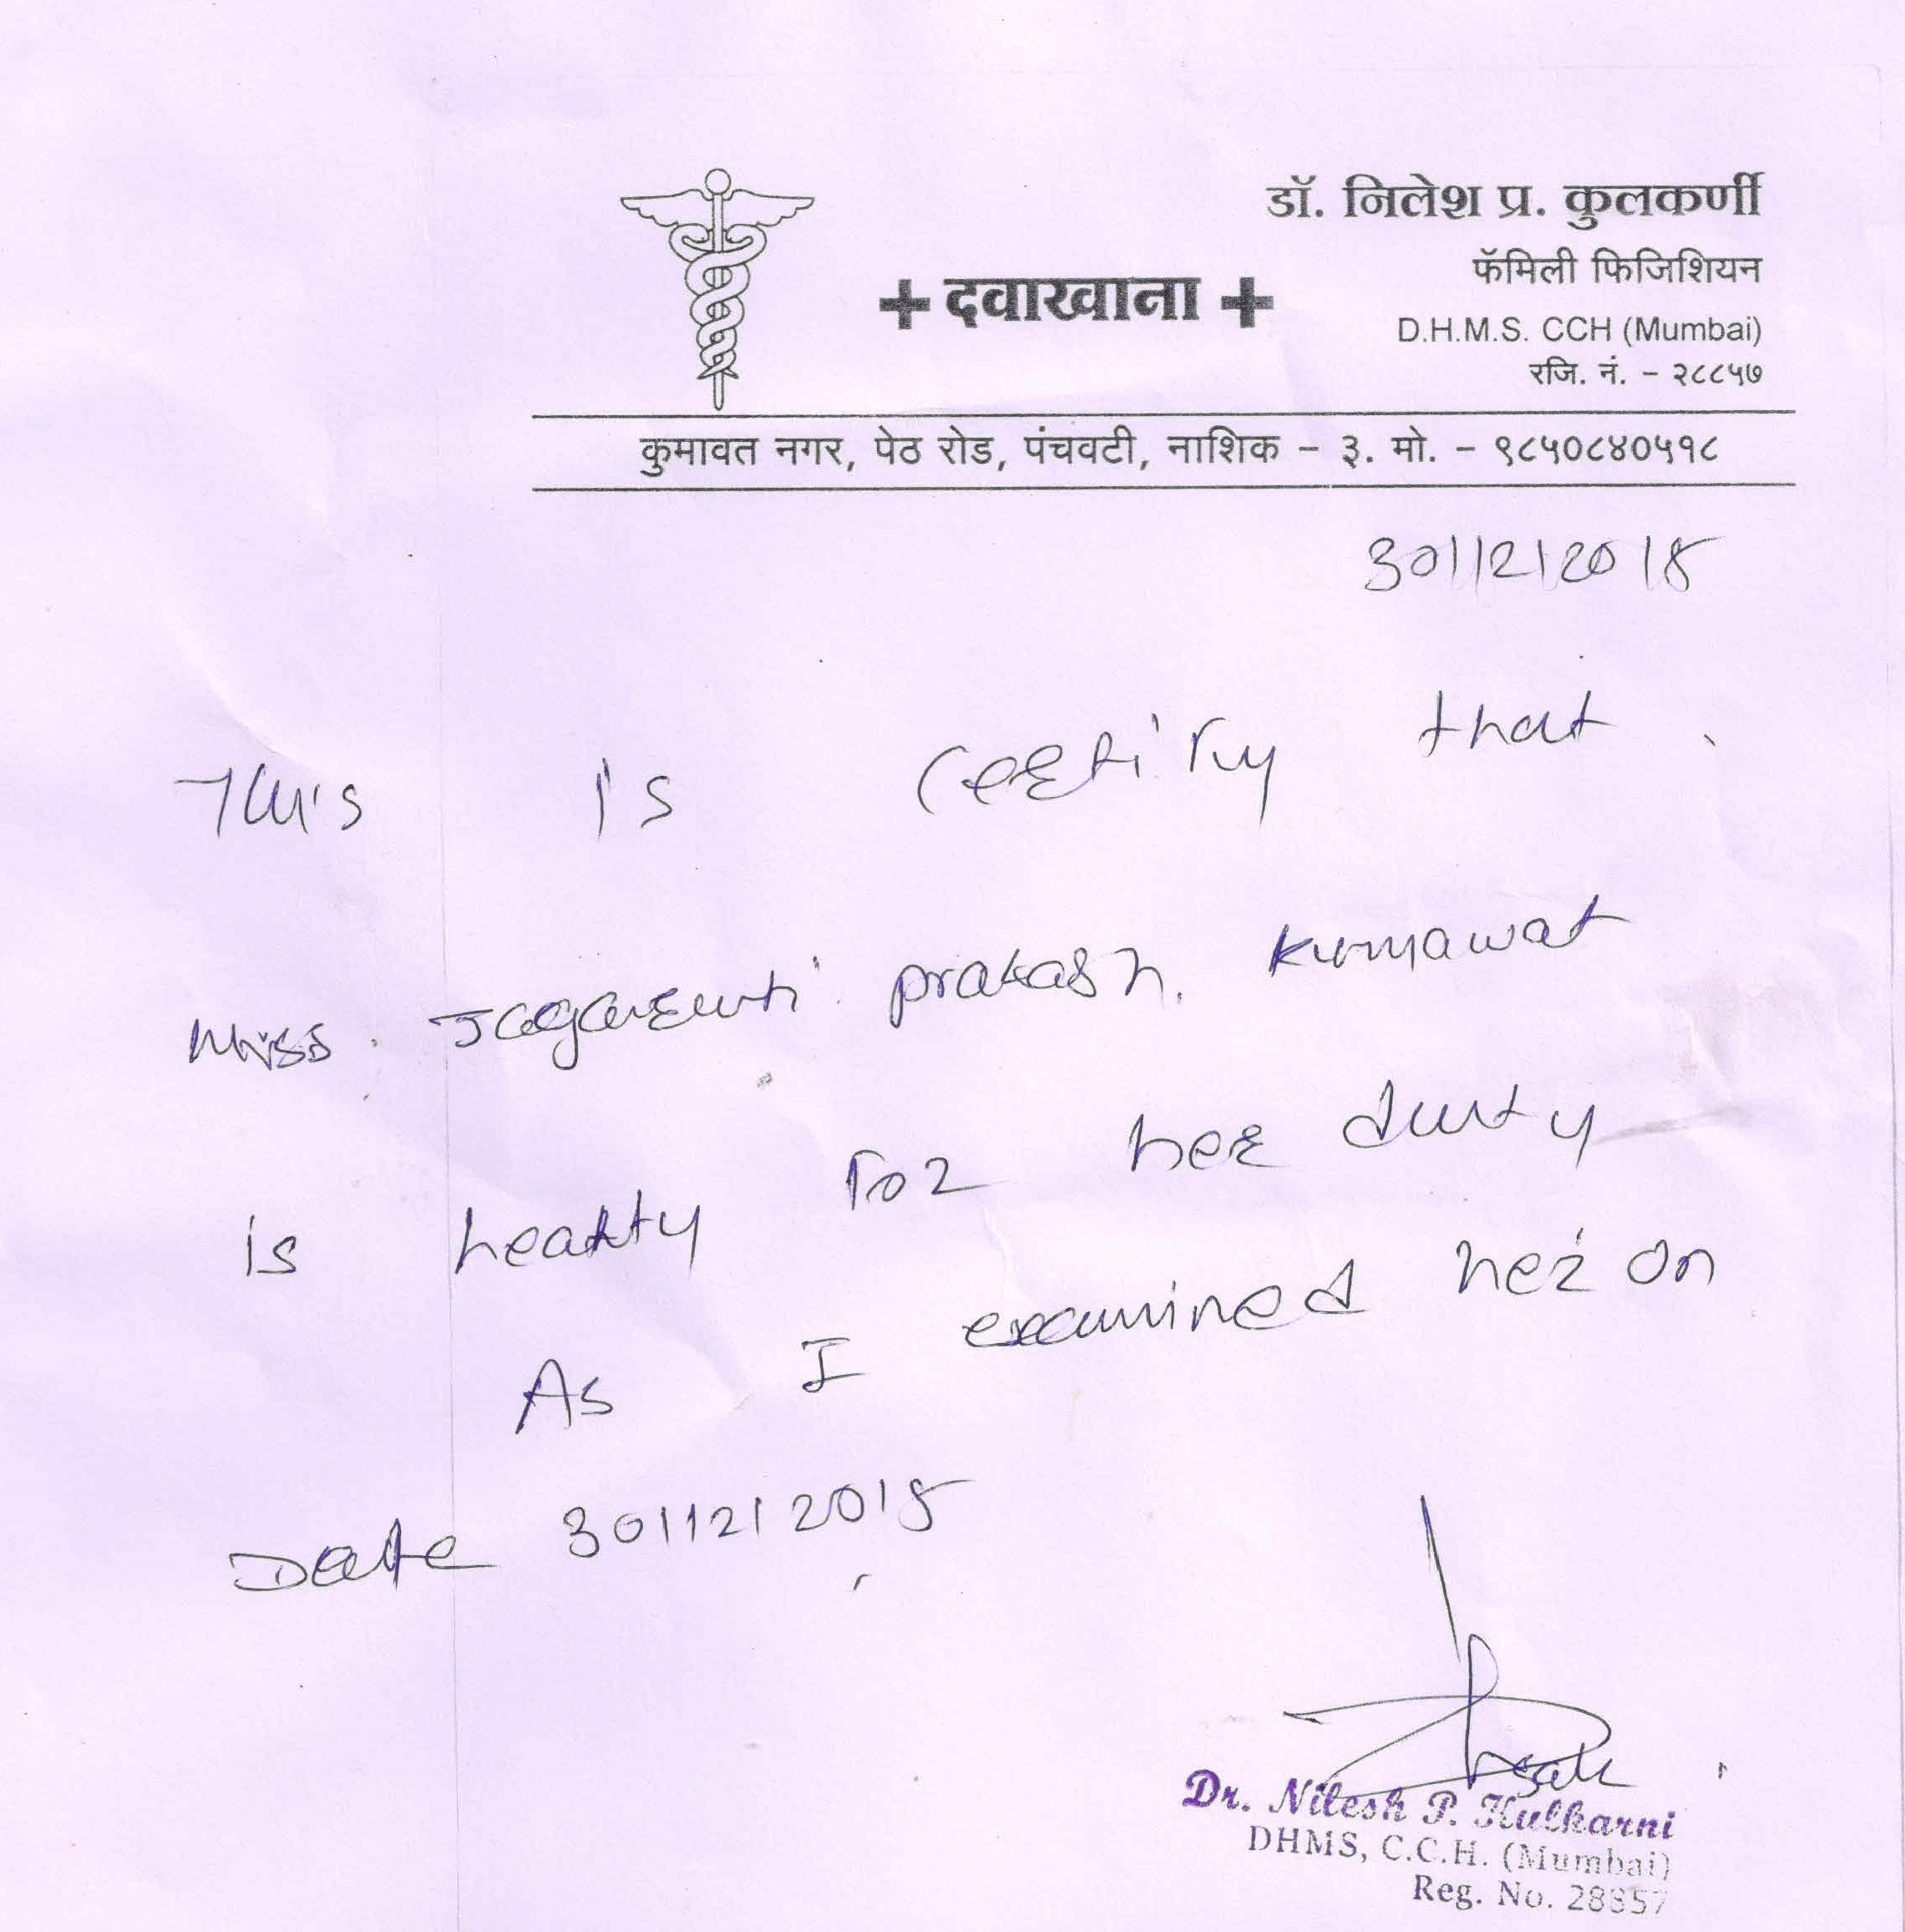 डॉ. निलेश प्र. कुलकर्णी
फॅमिली फिजिशियन
+ दवाखाना +
D.H.M.S. CCH (Mumbai)
रजि. नं. - २८८५७
कुमावत नगर, पेठ रोड, पंचवटी, नाशिक - ३. मो. - ९८५०८४०५१८
30/12/2018
This is certify that
Miss. Jagaruti prakash. Kumawat
is healty for her duty
As I examined her on
Date 30/12/2018
Dr. Nilesh P. Kulkarni
DHMS, C.C.H. (Mumbai)
Reg. No. 28857